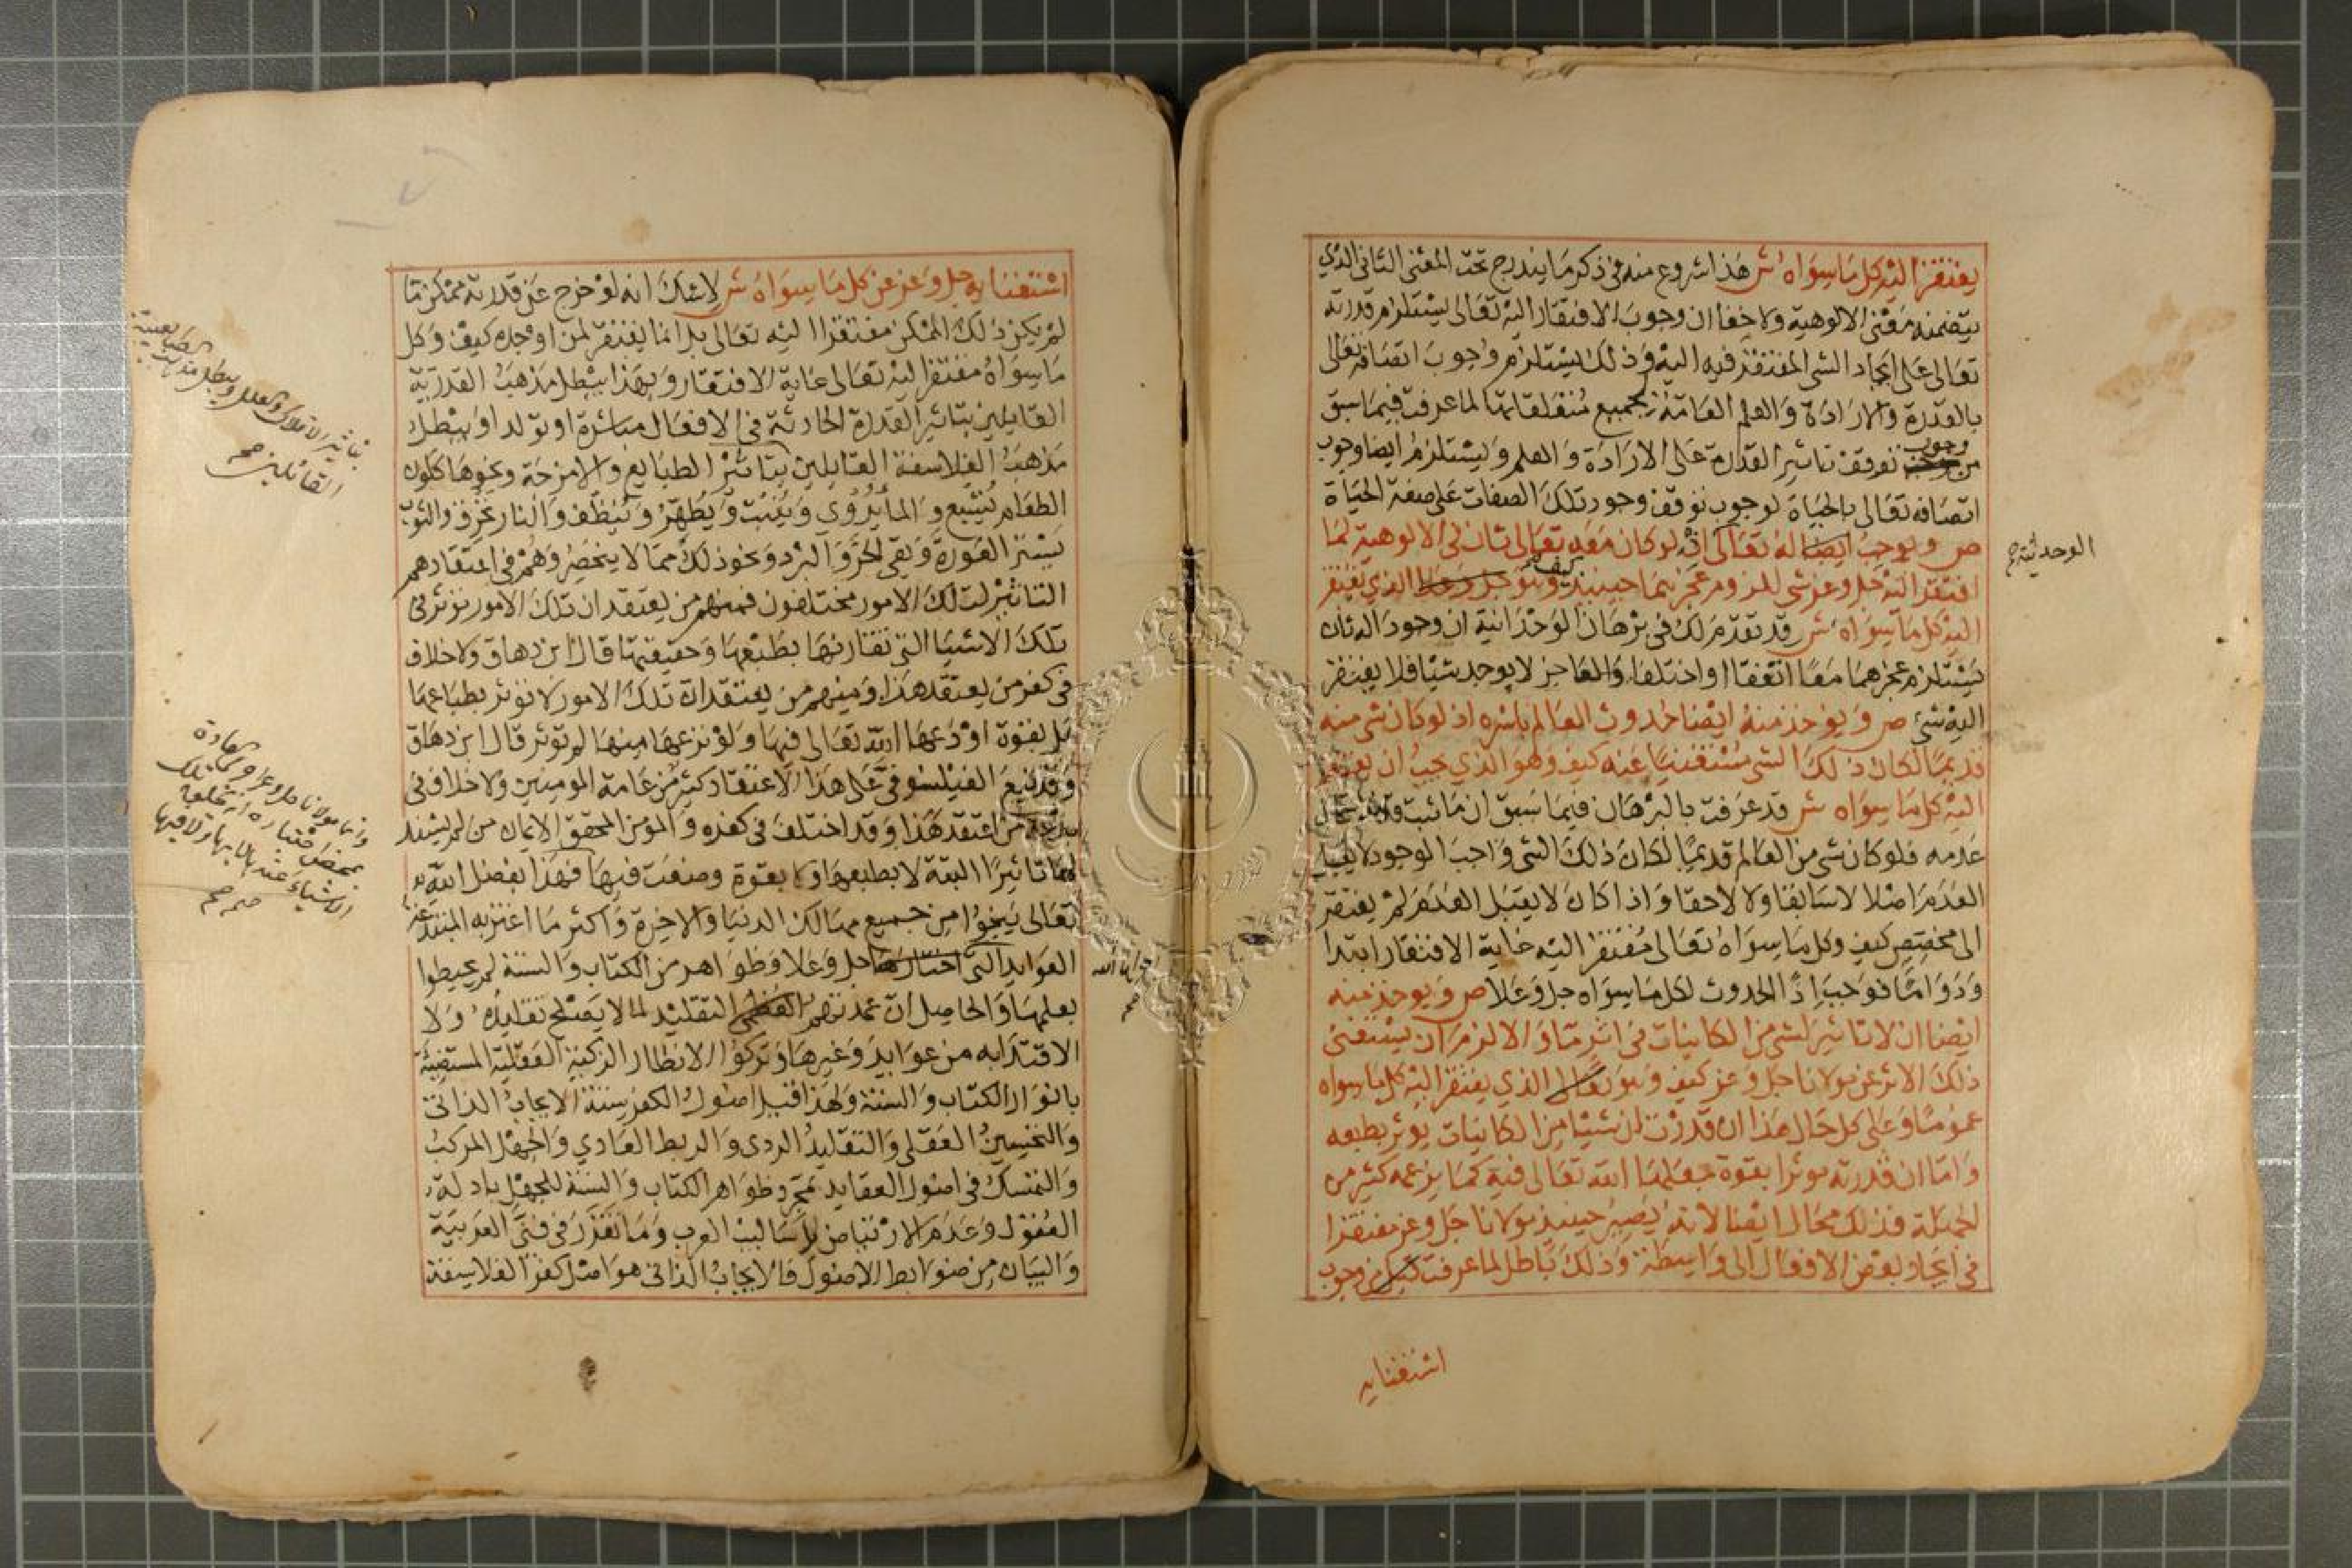 يفتقر اليه كل ما سواه ش هذا شروع منه في ذكر ما يندرج تحت المعنى الثاني الذي
يتضمنه معنى الالوهية ولا خفا ان وجوب الافتقار اليه تعالى يستلزم قدرته
تعالى على ايجاد الشي المفتقر فيه اليه وذلك يستلزم وجوب اتصافه تعالى
بالقدرة والارادة والعلم العامة لجميع متعلقاتها لما عرفت فيما سبق
من وجوب توقف تاثير القدرة على الارادة والعلم ويستلزم ايضا وجوب
اتصافه تعالى بالحياة لوجوب توقف وجود تلك الصفات على صفة الحياة
ص ويوجب ايضا له تعالى اذ لو كان معه تعالى ثان في الالوهية لما
الوحدانية صح
افتقر اليه جل وعز شي للزوم عجزهما حينيذ كيف وهو جل وعلا الذي يفتقر
اليه كل ما سواه ش قد تقدم لك في برهان الوحدانية ان وجود اله ثان
يستلزم عجزهما معا اتفقا او اختلفا والعاجز لا يوجد شيا فلا يفتقر
اليه شي ص ويوخذ منه ايضا حدوث العالم باسره اذ لو كان شي منه
قديما لكان ذلك الشي مستغنيا عنه كيف وهو الذي يجب ان يفتقر
اليه كل ما سواه ش قد عرفت بالبرهان فيما سبق ان ما ثبت قدمه استحال
عدمه فلو كان شي من العالم قديما لكان ذلك الشي واجب الوجود لا يقبل
العدم اصلا لا سابقا ولا لاحقا واذا كان لا يقبل العدم لم يفتقر
الى مخصص كيف وكل ما سواه تعالى مفتقر اليه غاية الافتقار ابتدا
ودواما فوجب اذا الحدوث لكل ما سواه جل وعلا ص ويوخذ منه
ايضا ان لا تاثير لشي من الكاينات في اثر ما والا لزم ان يستغني
ذلك الاثر عن مولانا جل وعز كيف وهو تعالى الذي يفتقر اليه كل ما سواه
عموما وعلى كل حال هذا ان قدرت ان شيا من الكاينات يوثر بطبعه
واما ان قدرته موثرا بقوة جعلها الله تعالى فيه كما يزعمه كثير من
الجهلة فذلك محال ايضا لانه يصير حينيذ مولانا جل وعز مفتقرا
في ايجاد بعض الافعال الى واسطة وذلك باطل لما عرفت من وجوب
استغنايه
استغنايه جل وعز عن كل ما سواه ش لا شك انه لو خرج عن قدرته ممكن ما
لم يكن ذلك الممكن مفتقرا اليه تعالى بل انما يفتقر لمن اوجده كيف وكل
ما سواه مفتقر اليه تعالى غاية الافتقار وبهذا يبطل مذهب القدرية
القايلين بتاثير القدرة الحادثة في الافعال مباشرة او تولدا ويبطل
مذهب الفلاسفة القايلين بتاثير الافلاك والعلل ويبطل مذهب الطبايعية
القائلين صح
بتاثير الطبايع والامزجة ونحوها ككون
الطعام يشبع والما يروي وينبت ويطهر وينظف والنار تحرق والثوب
يستر العورة ويقي الحر والبرد ونحو ذلك مما لا ينحصر وهم في اعتقادهم
التاثير لتلك الامور مختلفون فمنهم من يعتقد ان تلك الامور توثر في
تلك الاشيا التي تقارنها بطبعها وحقيقتها قال ابن دهاق ولا خلاف
في كفر من يعتقد هذا ومنهم من يعتقد ان تلك الامور لا توثر بطباعها
بل بقوة اودعها الله تعالى فيها ولو نزعها منها لم توثر قال ابن دهاق
وقد تبع الفيلسوفي على هذا الاعتقاد كثير من عامة المومنين ولا خلاف في
بدعة من اعتقد هذا وقد اختلف في كفره والمومن المحقق الايمان من لم يسند
لها تاثيرا البتة لا بطبعها ولا بقوة وضعت فيها
وانما مولانا جل وعز اجرى العادة
بمحض اختياره ان يخلق تلك
الاشياء عندها لا بها ولا فيها
صح صح
فهذا بفضل الله
تعالى ينجوا من جميع مهالك الدنيا والاخرة واكثر ما اغتر به المبتدعة
العوايد التي اجراها الله جل وعلا وظواهر من الكتاب والسنة لم يحيطوا
بعلمها والحاصل ان عمدتهم العظمى التقليد لما لا يصلح تقليده ولا
الاقتدا به من عوايد وغيرها وتركوا الانظار الزكية العقلية المستضية
بانوار الكتاب والسنة ولهذا قيل اصول الكفر ستة الايجاب الذاتي
والتحسين العقلي والتقليد الردي والربط العادي والجهل المركب
والتمسك في اصول العقايد بمجرد ظواهر الكتاب والسنة للجهل بادلة
العقول وعدم الارتياض باساليب العرب وما تقرر في فني العربية
والبيان من ضوابط الاصول فالايجاب الذاتي هو اصل كفر الفلاسفة